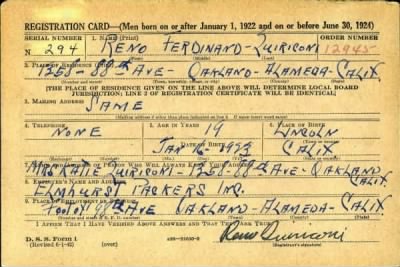 REGISTRATION CARD—(Men born on or after January 1, 1922 and on or before June 30, 1924)
SERIAL NUMBER 1. NAME (Print) ORDER NUMBER
N 294 RENO FERDINAND QUIRICONI 12945
3. PLACE OF RESIDENCE (Print)
1258-88TH AVE OAKLAND-ALAMEDA-CALIF
[THE PLACE OF RESIDENCE GIVEN ON THE LINE ABOVE WILL DETERMINE LOCAL BOARD
JURISDICTION; LINE 2 OF REGISTRATION CERTIFICATE WILL BE IDENTICAL]
3. MAILING ADDRESS
SAME
4. TELEPHONE 5. AGE IN YEARS 6. PLACE OF BIRTH
NONE 19 LINCOLN
DATE OF BIRTH
JAN 16 1923 CALIF
7. NAME AND ADDRESS OF PERSON WHO WILL ALWAYS KNOW YOUR ADDRESS
MRS KATIE QUIRICONI-1258-88TH AVE-OAKLAND CALIF.
8. EMPLOYER'S NAME AND ADDRESS
ELMHURST PACKERS INC.
9. PLACE OF EMPLOYMENT OR BUSINESS
FOOT OF AVE OAKLAND-ALAMEDA-CALIF.
I AFFIRM THAT I HAVE VERIFIED ABOVE ANSWERS AND THAT THEY ARE TRUE.
D. S. S. Form 1
(Revised 6-1-42) Reno Quiriconi
(Registrant's signature)